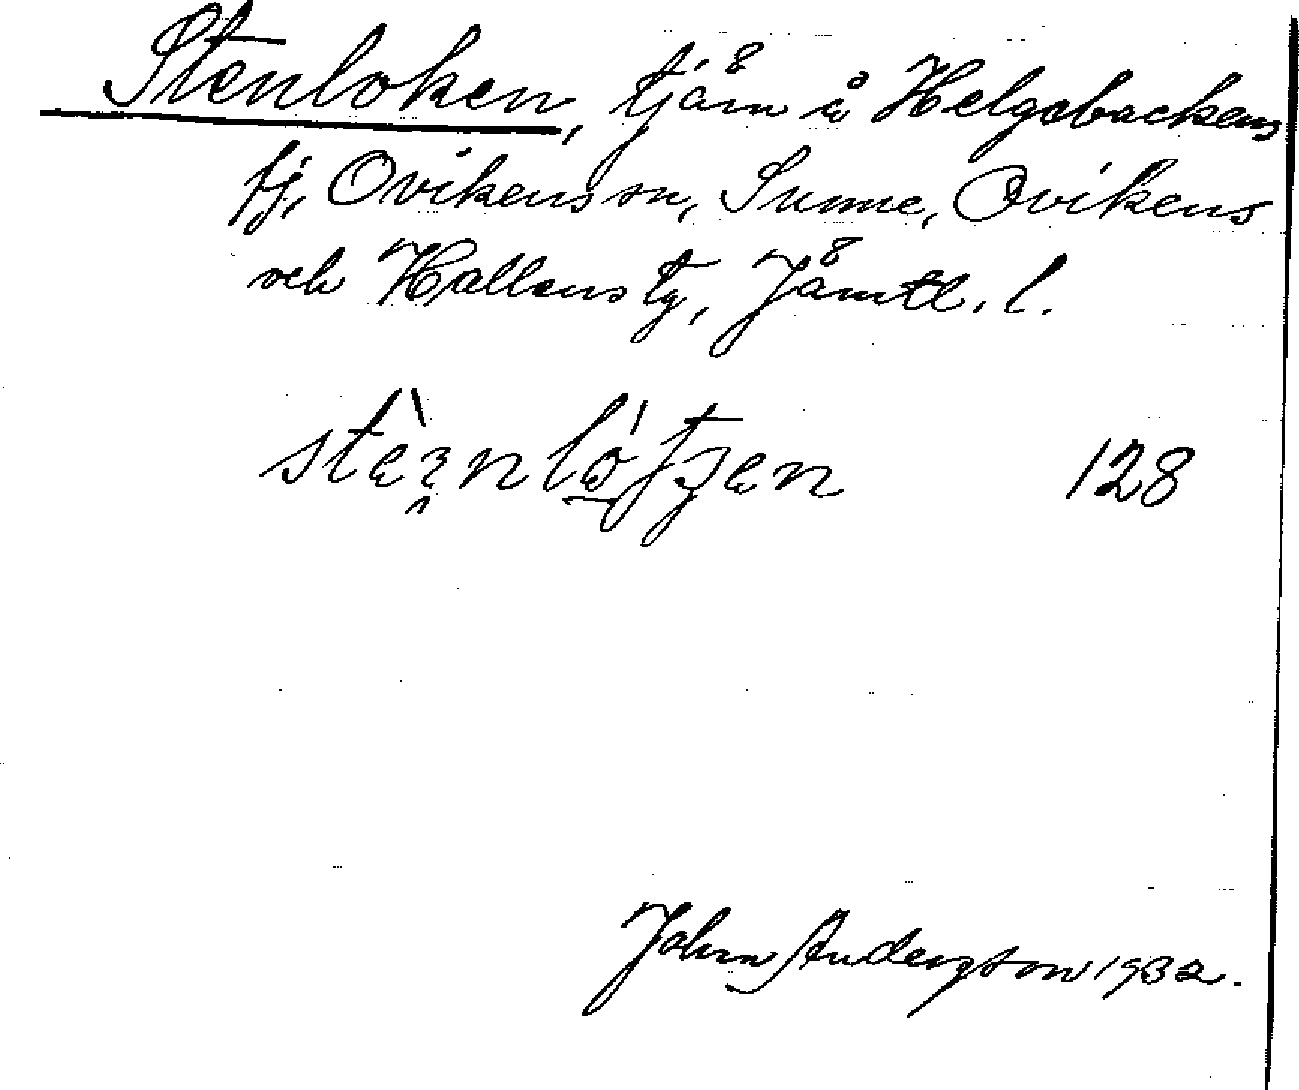 Stenloken, tjärn å Helgebackens
fj, Ovikens sn, Sunne, Ovikens
och Hallens tg, Jämtl. l.
128
John Andersson 1932.